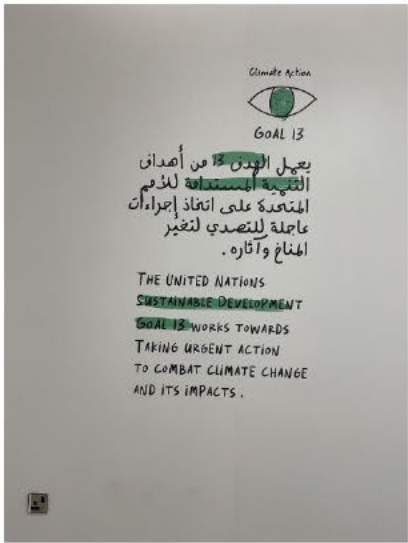 Climate Action
GOAL 13
يعمل الهدف 13 من أهداف
التنمية المستدامة للأمم
المتحدة على اتخاذ إجراءات
عاجلة للتصدي لتغير
المناخ وآثاره.
THE UNITED NATIONS
SUSTAINABLE DEVELOPMENT
GOAL 13 WORKS TOWARDS
TAKING URGENT ACTION
TO COMBAT CLIMATE CHANGE
AND ITS IMPACTS.